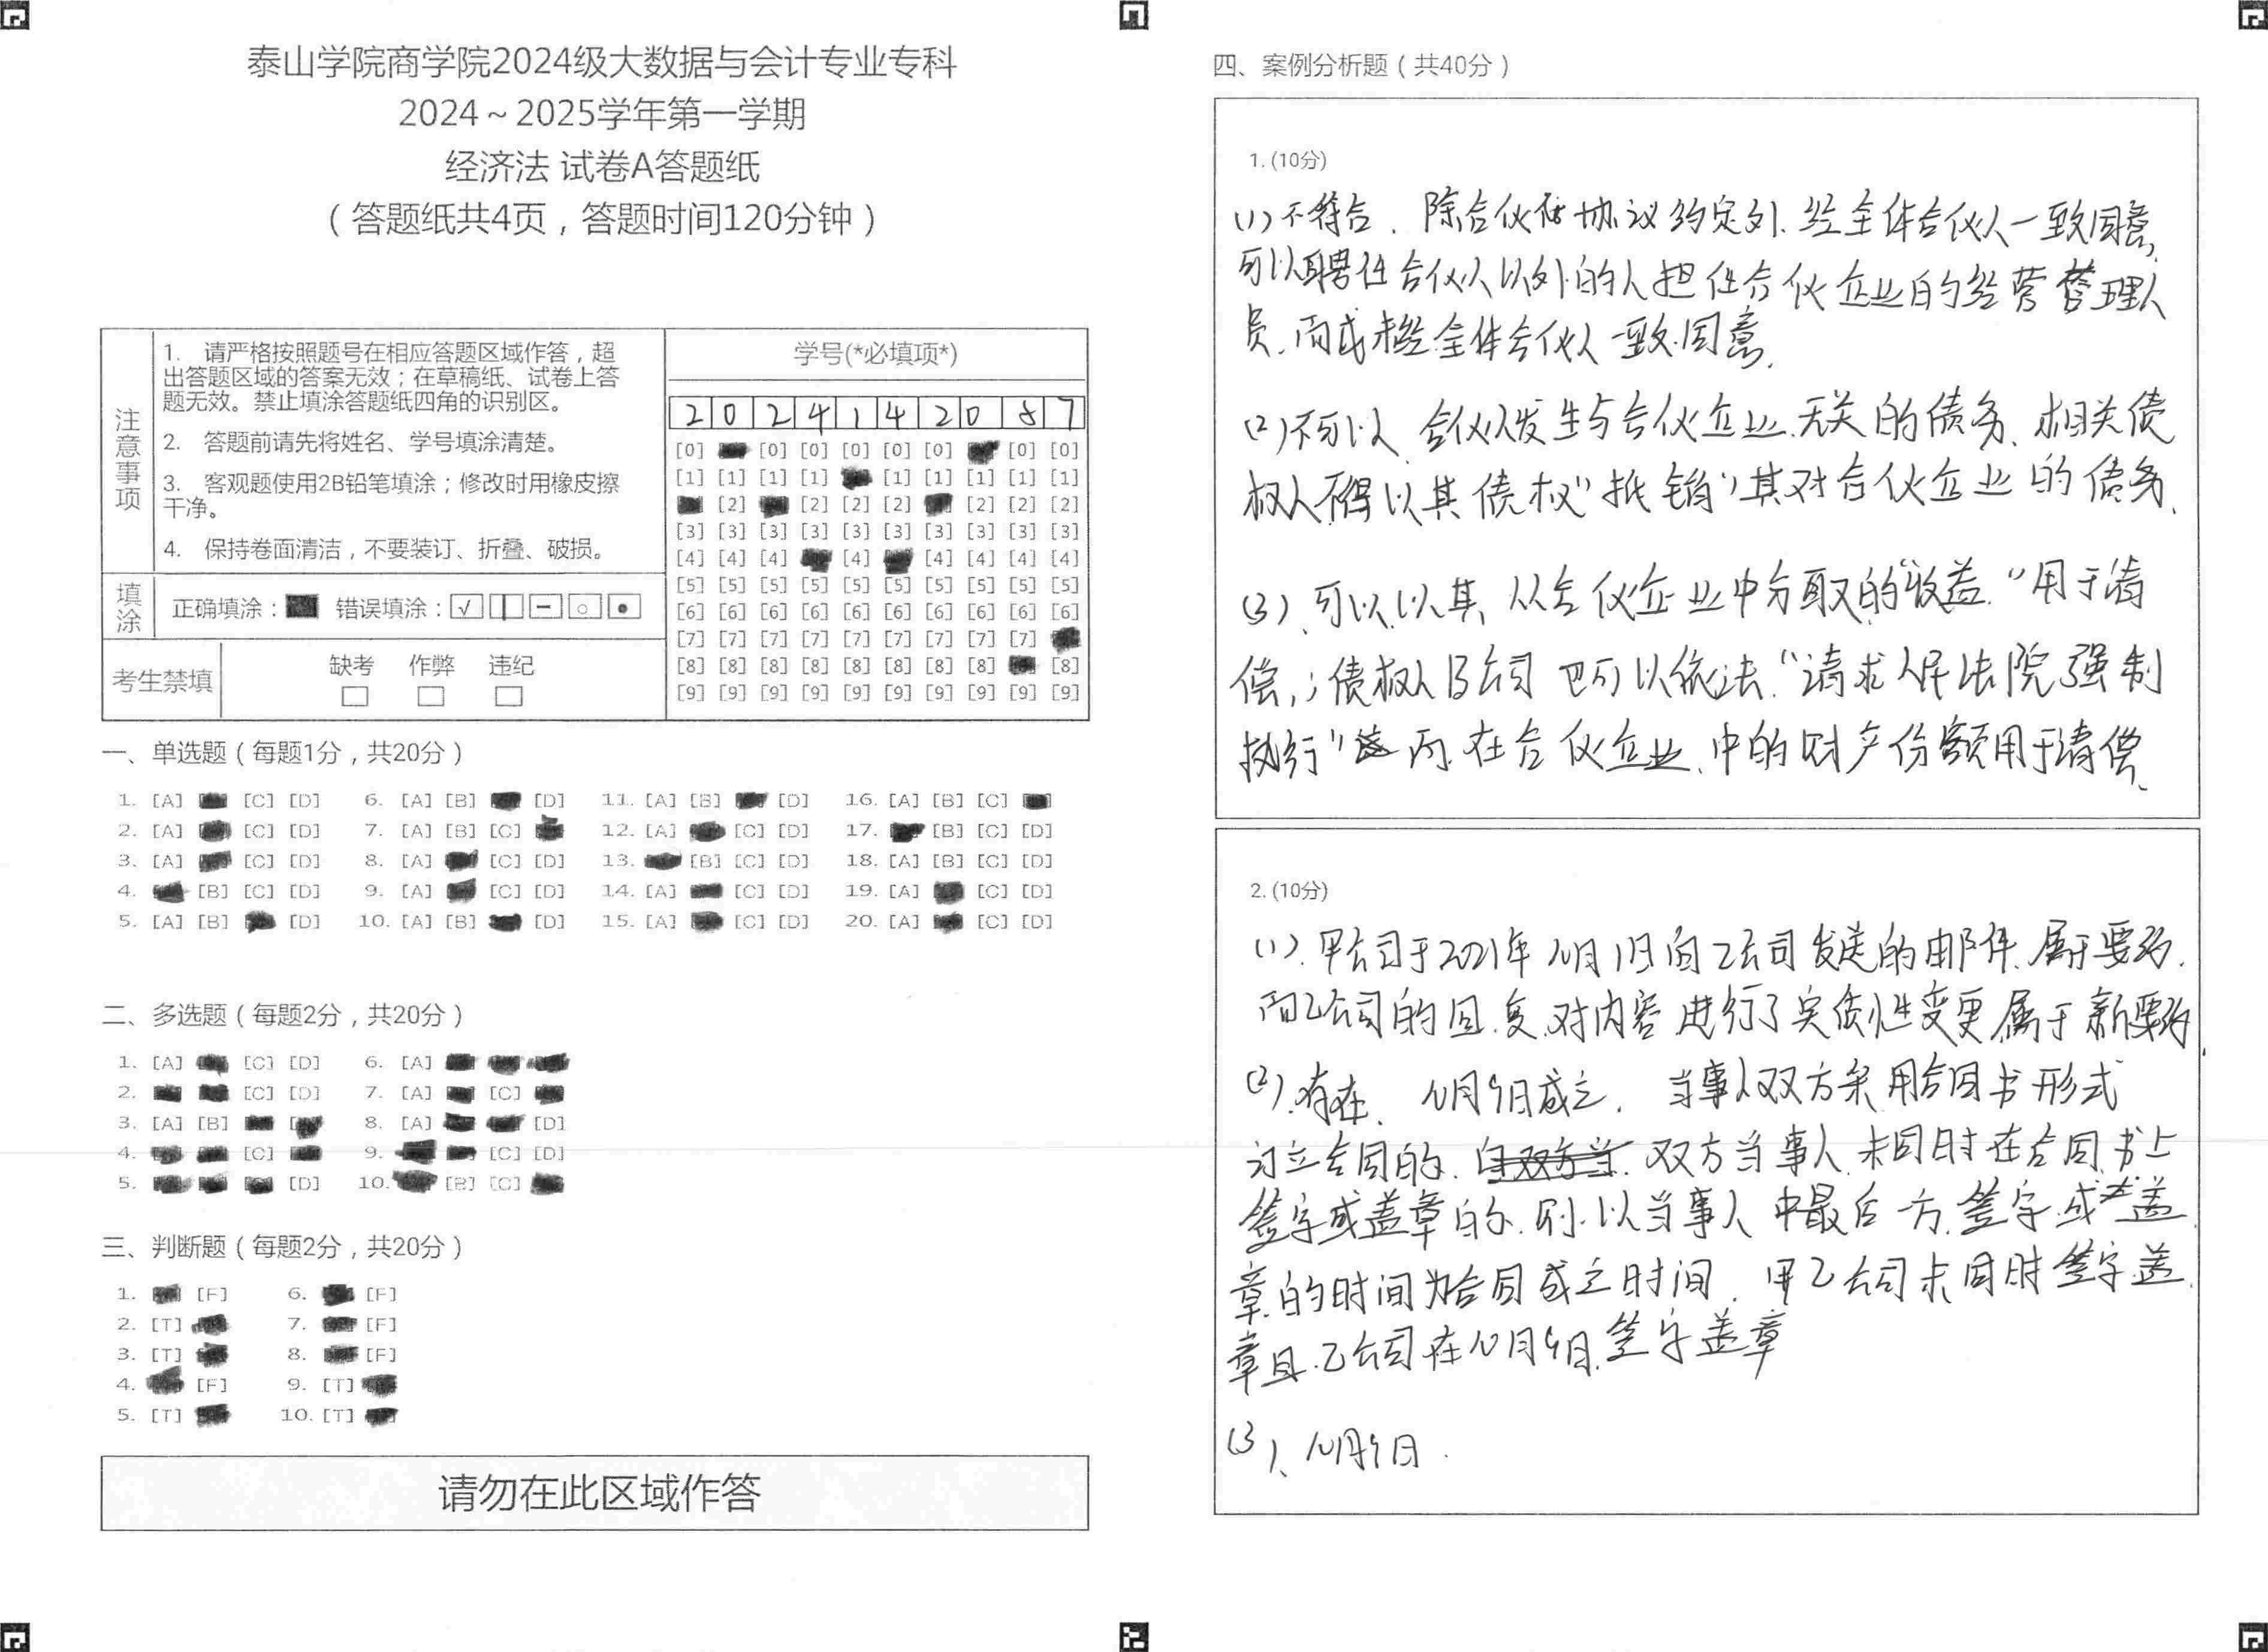 泰山学院商学院2024级大数据与会计专业专科
2024～2025学年第一学期
经济法 试卷A答题纸
（答题纸共4页，答题时间120分钟）
注意事项
1. 请严格按照题号在相应答题区域作答，超
出答题区域的答案无效；在草稿纸、试卷上答
题无效。禁止填涂答题纸四角的识别区。
2. 答题前请先将姓名、学号填涂清楚。
3. 客观题使用2B铅笔填涂；修改时用橡皮擦
干净。
4. 保持卷面清洁，不要装订、折叠、破损。
填涂
正确填涂： 错误填涂：
考生禁填
缺考 作弊 违纪
学号(*必填项*)
2 0 2 4 1 4 2 0 8 7
[0] [0] [0] [0] [0] [0] [0] [0]
[1] [1] [1] [1] [1] [1] [1] [1] [1]
[2] [2] [2] [2] [2] [2] [2]
[3] [3] [3] [3] [3] [3] [3] [3] [3] [3]
[4] [4] [4] [4] [4] [4] [4] [4]
[5] [5] [5] [5] [5] [5] [5] [5] [5] [5]
[6] [6] [6] [6] [6] [6] [6] [6] [6] [6]
[7] [7] [7] [7] [7] [7] [7] [7] [7]
[8] [8] [8] [8] [8] [8] [8] [8] [8]
[9] [9] [9] [9] [9] [9] [9] [9] [9] [9]
一、单选题（每题1分，共20分）
1. [A] [C] [D] 6. [A] [B] [D] 11. [A] [B] [D] 16. [A] [B] [C]
2. [A] [C] [D] 7. [A] [B] [C] 12. [A] [C] [D] 17. [B] [C] [D]
3. [A] [C] [D] 8. [A] [C] [D] 13. [B] [C] [D] 18. [A] [B] [C] [D]
4. [B] [C] [D] 9. [A] [C] [D] 14. [A] [C] [D] 19. [A] [C] [D]
5. [A] [B] [D] 10. [A] [B] [D] 15. [A] [C] [D] 20. [A] [C] [D]
二、多选题（每题2分，共20分）
1. [A] [C] [D] 6. [A]
2. [C] [D] 7. [A] [C]
3. [A] [B] 8. [A] [D]
4. [C] 9. [C] [D]
5. [D] 10. [B] [C]
三、判断题（每题2分，共20分）
1. [F] 6. [F]
2. [T] 7. [F]
3. [T] 8. [F]
4. [F] 9. [T]
5. [T] 10. [T]
请勿在此区域作答
四、案例分析题（共40分）
1. (10分)
(1) 不符合．除合伙 协议约定外．经全体合伙人一致同意，
可以聘任合伙人以外的人担任合伙企业的经营管理人
员．而 未经全体合伙人一致同意．
(2) 不可以．合伙人发生与合伙企业无关的债务、相关债
权人不得以其债权“抵销”其对合伙企业的债务．
(3)、可以以其从合伙企业中分取的“收益”用于清
偿，；债权人B公司 可以依法“请求人民法院强制
执行” 丙在合伙企业中的财产份额用于清偿．
2. (10分)
(1)．甲公司于2021年10月1日向乙公司发送的邮件．属于要约．
而乙公司的回复对内容进行了实质性变更属于新要约．
(2)．存在．10月9日成立．当事人双方采用合同书形式
订立合同的．自双方当 双方当事人未同时在合同书上
签字或盖章的．则以当事人中最后一方签字或盖
章的时间为合同成立时间．甲乙公司未同时签字盖
章且乙公司在10月9日签字盖章
(3)、10月9日．